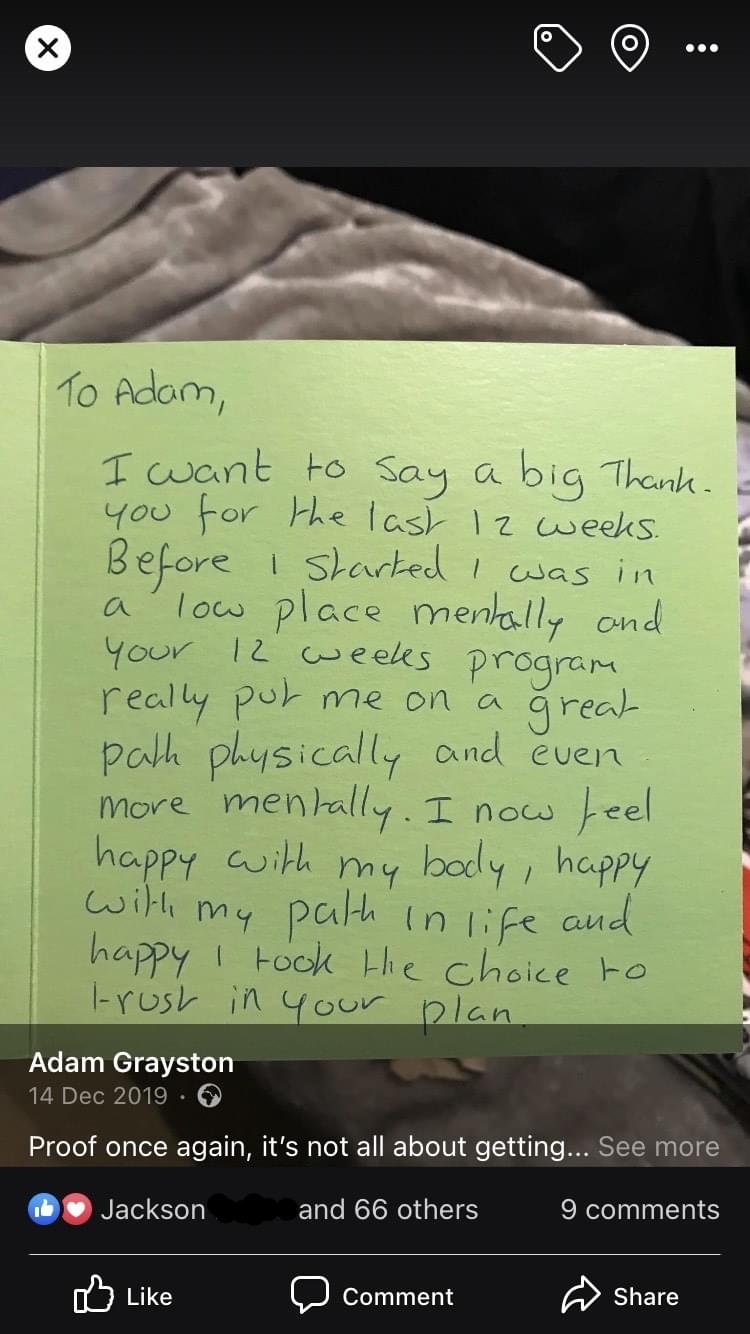 To Adam,
I want to say a big Thank-
you for the last 12 weeks.
Before I started I was in
a low place mentally and
your 12 weeks program
really put me on a great
path physically and even
more mentally. I now feel
happy with my body, happy
with my path in life and
happy I took the choice to
trust in your plan.
Adam Grayston
14 Dec 2019 ·
Proof once again, it’s not all about getting... See more
Jackson and 66 others 9 comments
Like Comment Share